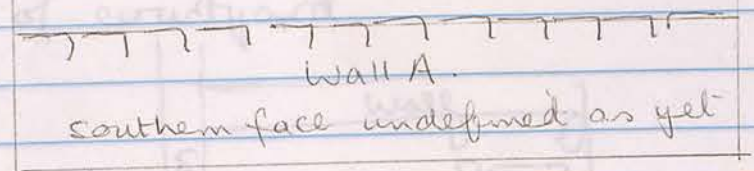 Wall A.
southern face undefined as yet